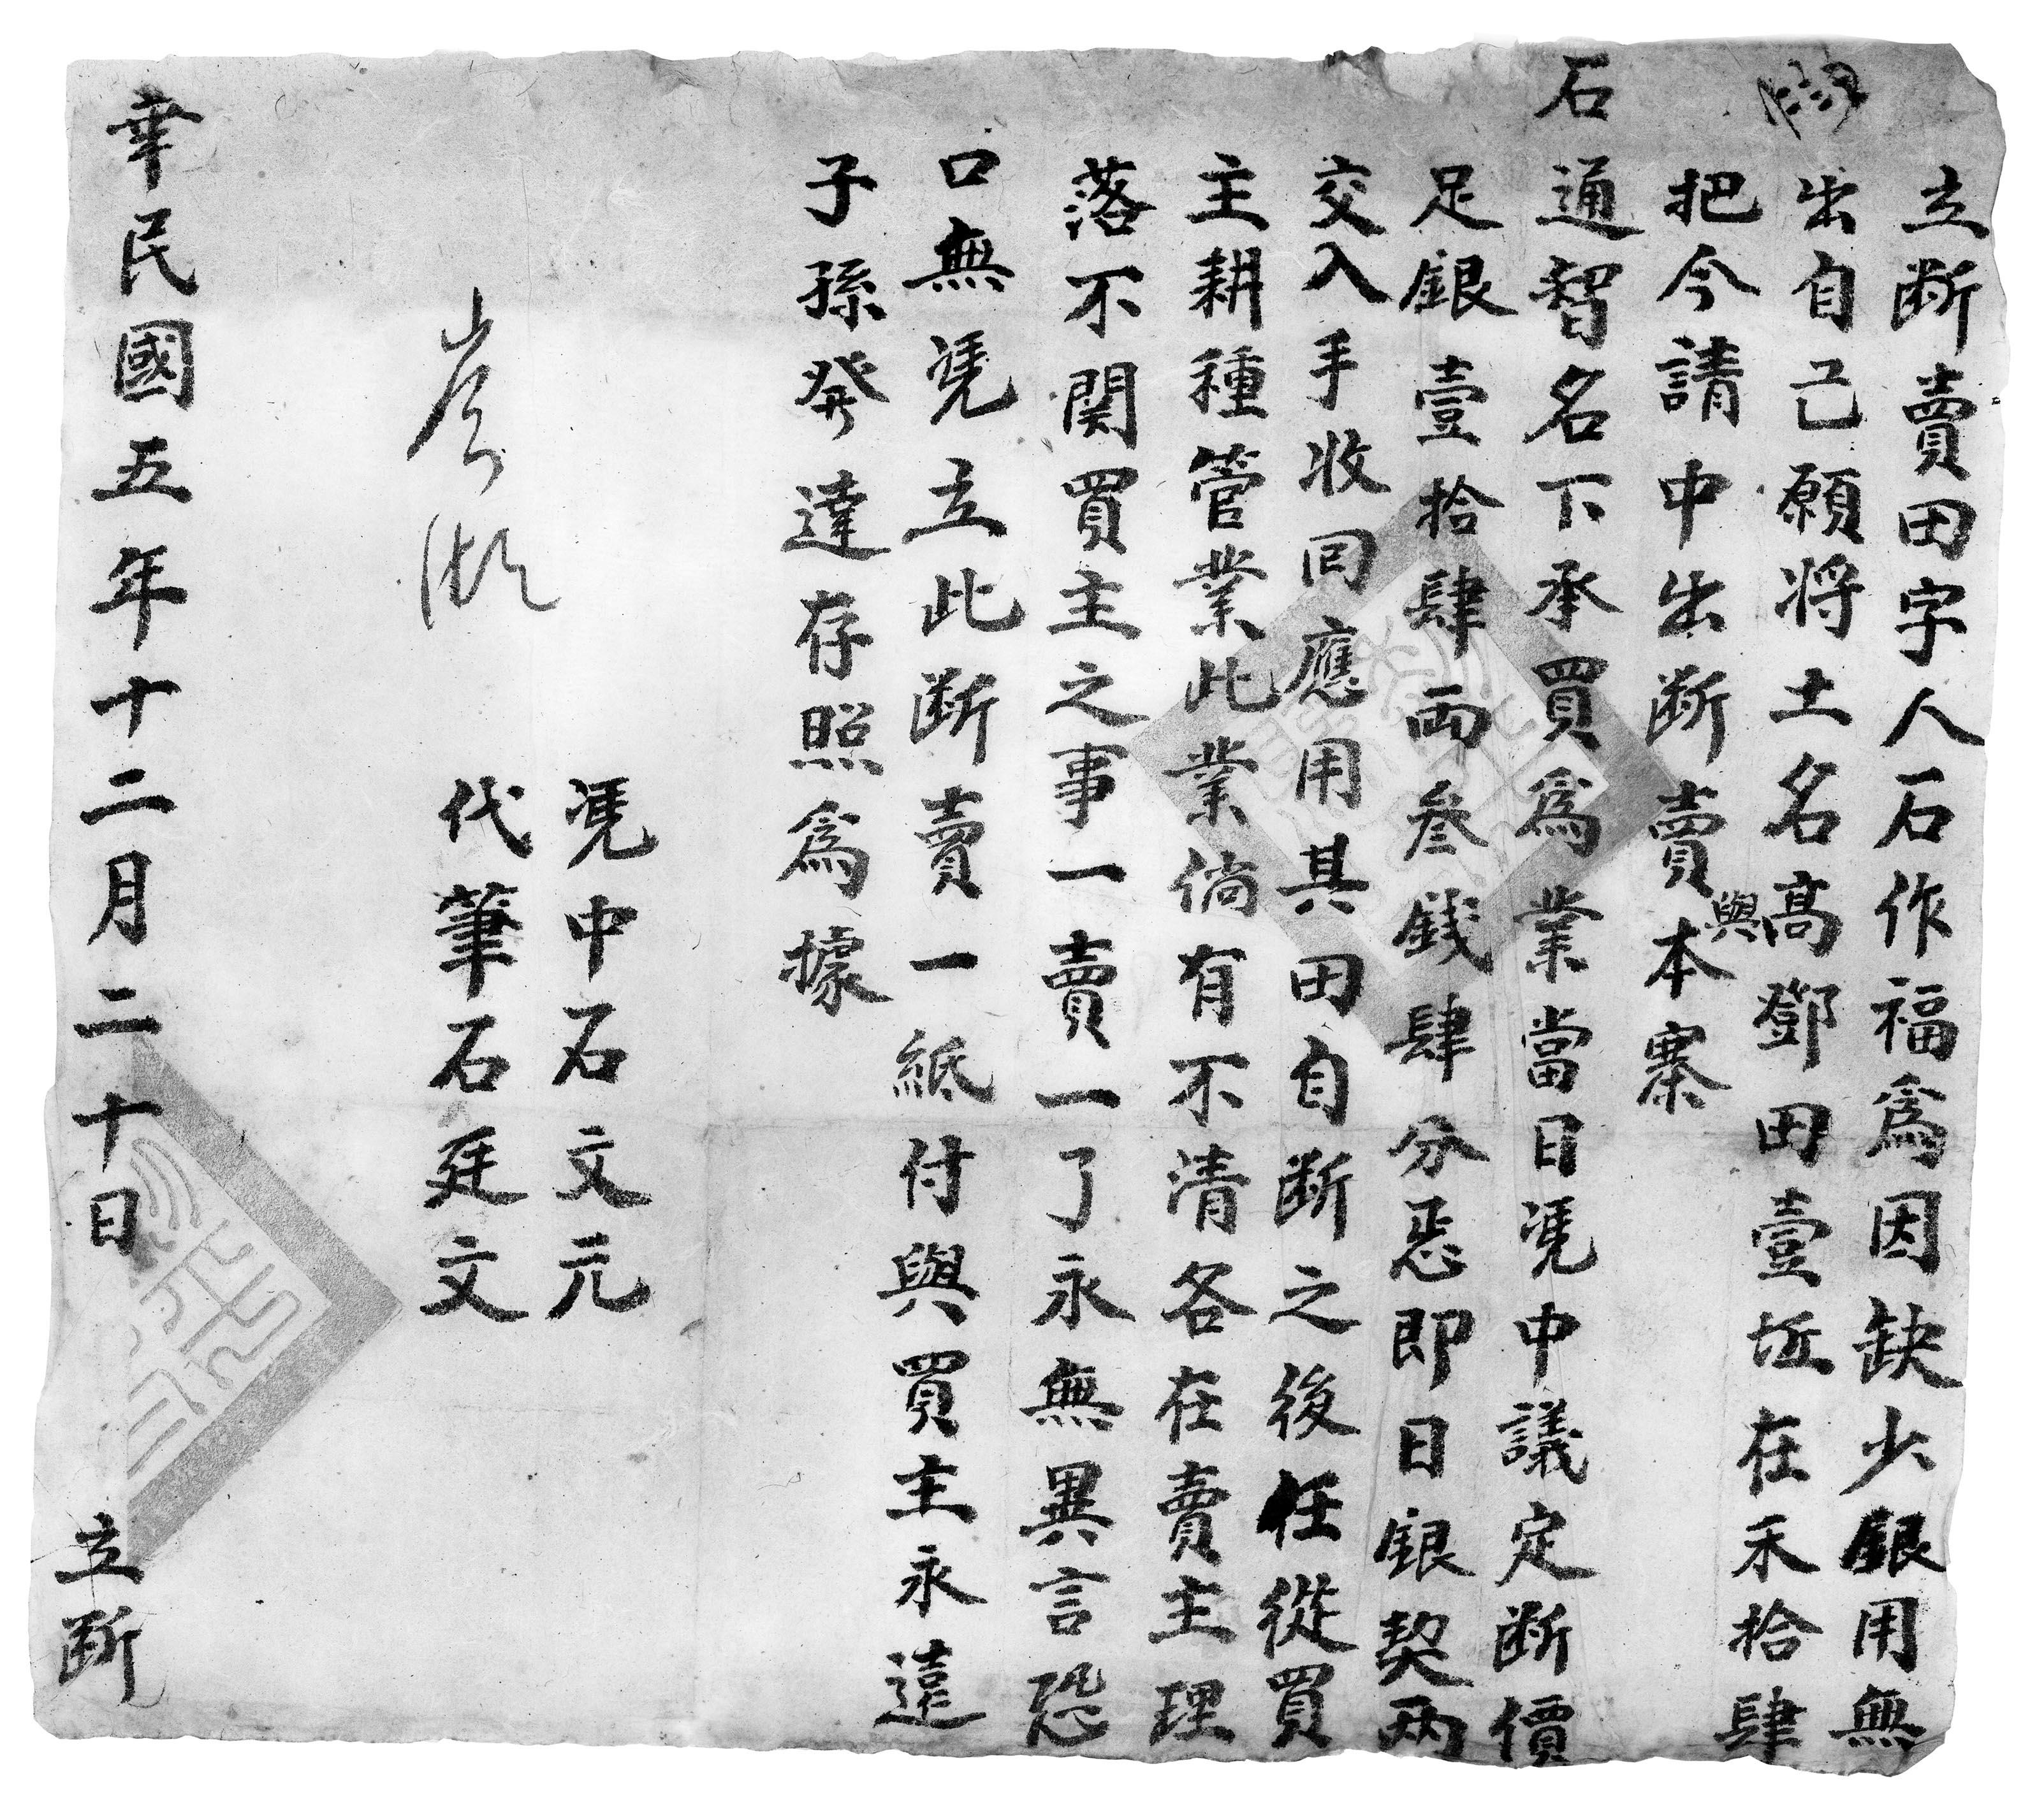 立断賣田字人石作福爲因缺少銀用無
出自己願将土名高鄧田壹坵在禾拾肆
把今請中出断賣與本寨
石通智名下承買爲業當日凴中議定断價
足銀壹拾肆両叁錢肆分恧即日銀契两
交入手收回應用其田自断之後任從買
主耕種管業此業倘有不清各在賣主理
落不関買主之事一賣一了永無異言恐
口無凴立此断賣一紙付與買主永遠
子孫発達存照爲據
凴中石文元
代筆石廷文
民國五年十二月二十日 立断